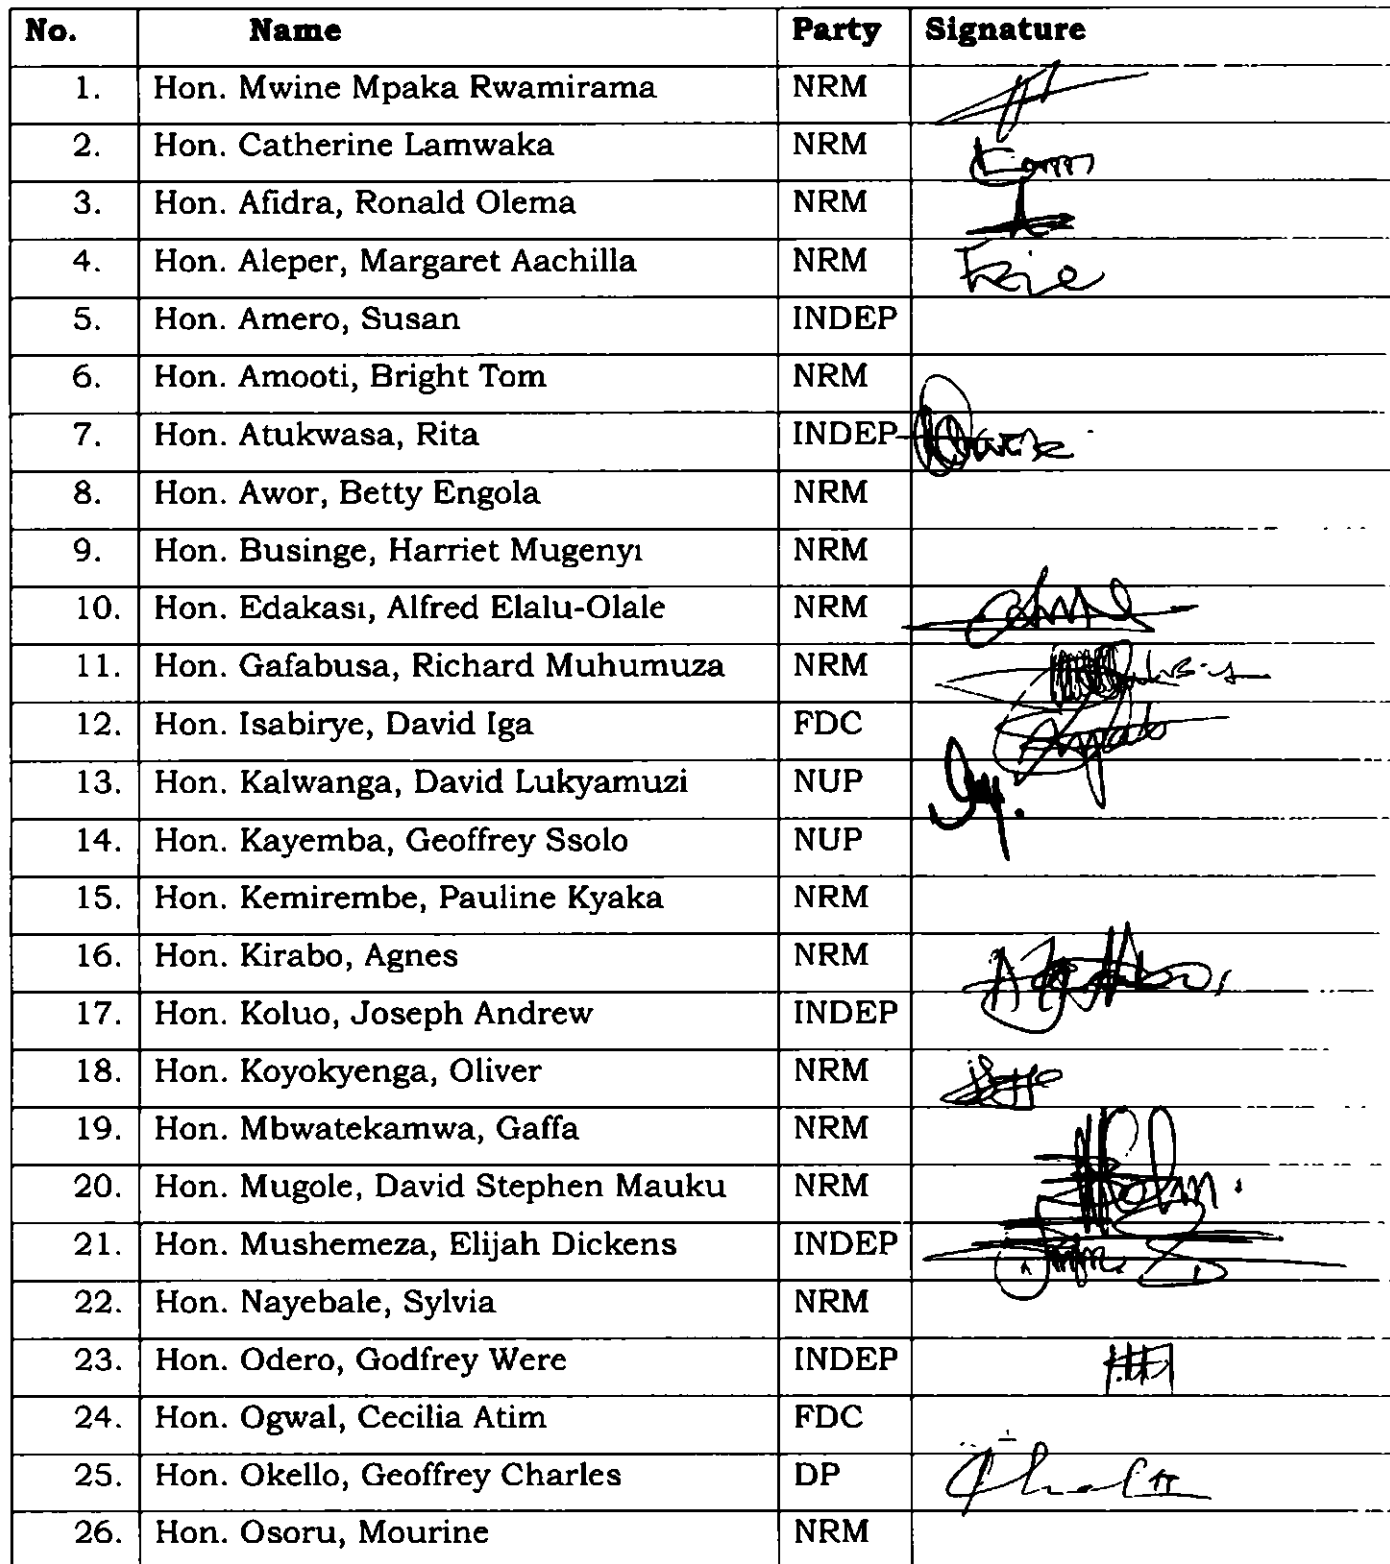 No. Name Party Signature
1. Hon. Mwine Mpaka Rwamirama NRM
2. Hon. Catherine Lamwaka NRM
3. Hon. Afidra, Ronald Olema NRM
4. Hon. Aleper, Margaret Aachilla NRM
5. Hon. Amero, Susan INDEP
6. Hon. Amooti, Bright Tom NRM
7. Hon. Atukwasa, Rita INDEP
8. Hon. Awor, Betty Engola NRM
9. Hon. Businge, Harriet Mugenyi NRM
10. Hon. Edakasi, Alfred Elalu-Olale NRM
11. Hon. Gafabusa, Richard Muhumuza NRM
12. Hon. Isabirye, David Iga FDC
13. Hon. Kalwanga, David Lukyamuzi NUP
14. Hon. Kayemba, Geoffrey Ssolo NUP
15. Hon. Kemirembe, Pauline Kyaka NRM
16. Hon. Kirabo, Agnes NRM
17. Hon. Koluo, Joseph Andrew INDEP
18. Hon. Koyokyenga, Oliver NRM
19. Hon. Mbwatekamwa, Gaffa NRM
20. Hon. Mugole, David Stephen Mauku NRM
21. Hon. Mushemeza, Elijah Dickens INDEP
22. Hon. Nayebale, Sylvia NRM
23. Hon. Odero, Godfrey Were INDEP
24. Hon. Ogwal, Cecilia Atim FDC
25. Hon. Okello, Geoffrey Charles DP
26. Hon. Osoru, Mourine NRM